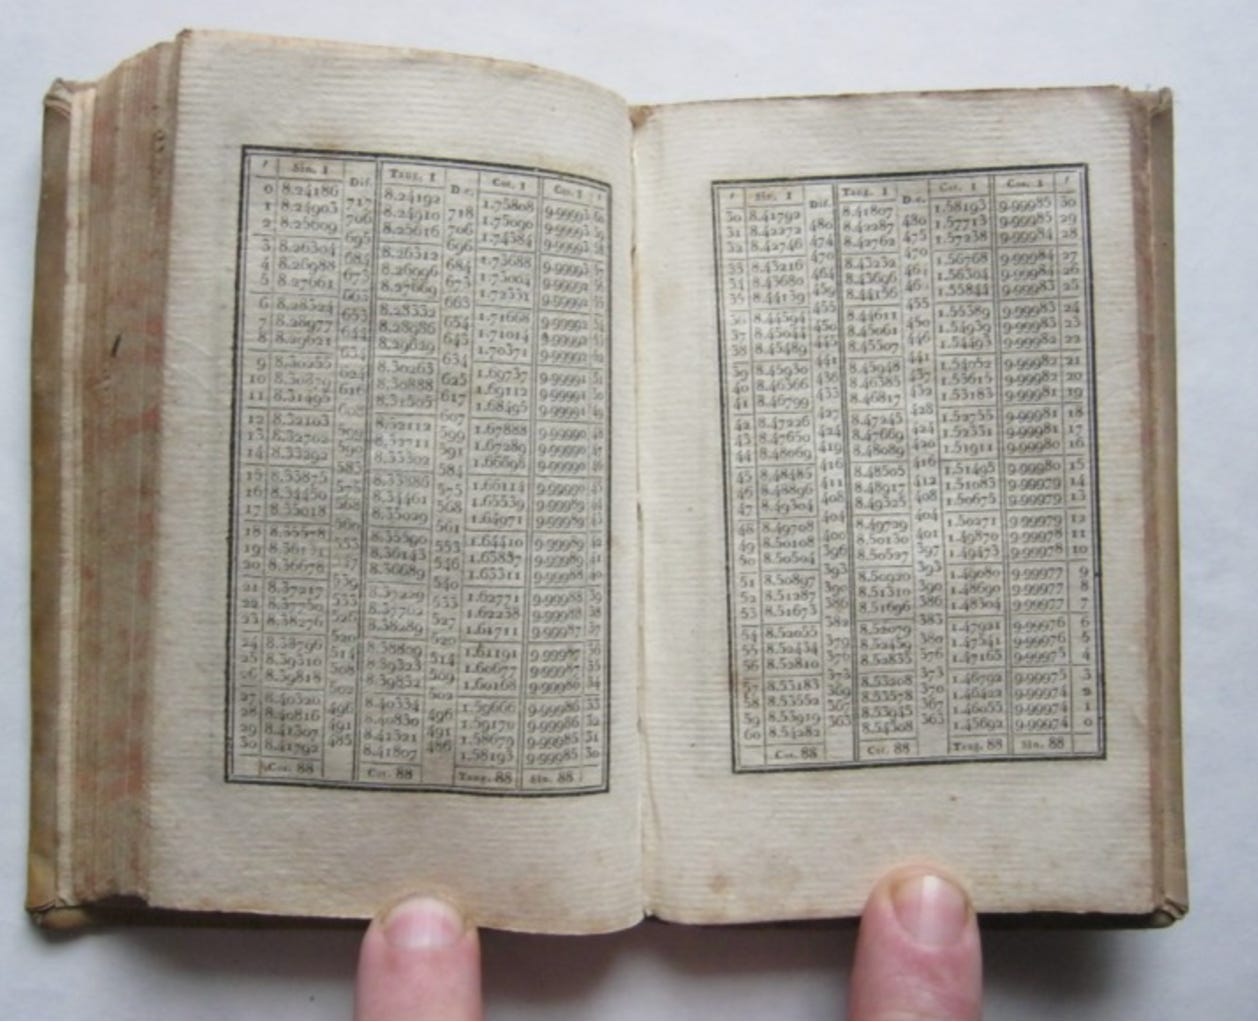 ′ Sin. 1 Dif. Tang. 1 D.c. Cot. 1 Cos. 1 ′
0 8.24186 717 8.24192 718 1.75808 9.99993 60
1 8.24903 706 8.24910 706 1.75090 9.99993 59
2 8.25609 695 8.25616 696 1.74384 9.99993 58
3 8.26304 684 8.26312 684 1.73688 9.99993 57
4 8.26988 673 8.26996 673 1.73004 9.99992 56
5 8.27661 663 8.27669 663 1.72331 9.99992 55
6 8.28324 653 8.28332 654 1.71668 9.99992 54
7 8.28977 644 8.28986 643 1.71014 9.99992 53
8 8.29621 634 8.29629 634 1.70371 9.99992 52
9 8.30255 624 8.30263 625 1.69737 9.99991 51
10 8.30879 616 8.30888 617 1.69112 9.99991 50
11 8.31495 608 8.31505 607 1.68495 9.99991 49
12 8.32103 599 8.32112 599 1.67888 9.99990 48
13 8.32702 590 8.32711 591 1.67289 9.99990 47
14 8.33292 583 8.33302 584 1.66698 9.99990 46
15 8.33875 575 8.33886 575 1.66114 9.99990 45
16 8.34450 568 8.34461 568 1.65539 9.99989 44
17 8.35018 560 8.35029 561 1.64971 9.99989 43
18 8.35578 553 8.35590 553 1.64410 9.99989 42
19 8.36131 547 8.36143 546 1.63857 9.99989 41
20 8.36678 539 8.36689 540 1.63311 9.99988 40
21 8.37217 533 8.37229 533 1.62771 9.99988 39
22 8.37750 526 8.37762 527 1.62238 9.99988 38
23 8.38276 520 8.38289 520 1.61711 9.99987 37
24 8.38796 514 8.38809 514 1.61191 9.99987 36
25 8.39310 508 8.39323 509 1.60677 9.99987 35
26 8.39818 502 8.39832 502 1.60168 9.99986 34
27 8.40320 496 8.40334 496 1.59666 9.99986 33
28 8.40816 491 8.40830 491 1.59170 9.99986 32
29 8.41307 485 8.41321 486 1.58679 9.99985 31
30 8.41792 8.41807 1.58193 9.99985 30
Cos. 88 Cot. 88 Tang. 88 Sin. 88
′ Sin. 1 Dif. Tang. 1 D.c. Cot. 1 Cos. 1 ′
30 8.41792 480 8.41807 480 1.58193 9.99985 30
31 8.42272 474 8.42287 475 1.57713 9.99985 29
32 8.42746 470 8.42762 470 1.57238 9.99984 28
33 8.43216 464 8.43232 464 1.56768 9.99984 27
34 8.43680 459 8.43696 460 1.56304 9.99984 26
35 8.44139 455 8.44156 455 1.55844 9.99983 25
36 8.44594 450 8.44611 450 1.55389 9.99983 24
37 8.45044 445 8.45061 446 1.54939 9.99983 23
38 8.45489 441 8.45507 441 1.54493 9.99982 22
39 8.45930 436 8.45948 437 1.54052 9.99982 21
40 8.46366 433 8.46385 432 1.53615 9.99982 20
41 8.46799 427 8.46817 428 1.53183 9.99981 19
42 8.47226 424 8.47245 424 1.52755 9.99981 18
43 8.47650 419 8.47669 420 1.52331 9.99981 17
44 8.48069 416 8.48089 416 1.51911 9.99980 16
45 8.48485 411 8.48505 412 1.51495 9.99980 15
46 8.48896 408 8.48917 408 1.51083 9.99979 14
47 8.49304 404 8.49325 404 1.50675 9.99979 13
48 8.49708 400 8.49729 401 1.50271 9.99979 12
49 8.50108 396 8.50130 397 1.49870 9.99978 11
50 8.50504 393 8.50527 393 1.49473 9.99978 10
51 8.50897 390 8.50920 390 1.49080 9.99977 9
52 8.51287 386 8.51310 386 1.48690 9.99977 8
53 8.51673 382 8.51696 383 1.48304 9.99977 7
54 8.52055 379 8.52079 380 1.47921 9.99976 6
55 8.52434 376 8.52459 376 1.47541 9.99976 5
56 8.52810 373 8.52835 373 1.47165 9.99975 4
57 8.53183 369 8.53208 370 1.46792 9.99975 3
58 8.53552 367 8.53578 367 1.46422 9.99974 2
59 8.53919 363 8.53945 363 1.46055 9.99974 1
60 8.54282 8.54308 1.45692 9.99974 0
Cos. 88 Cot. 88 Tang. 88 Sin. 88